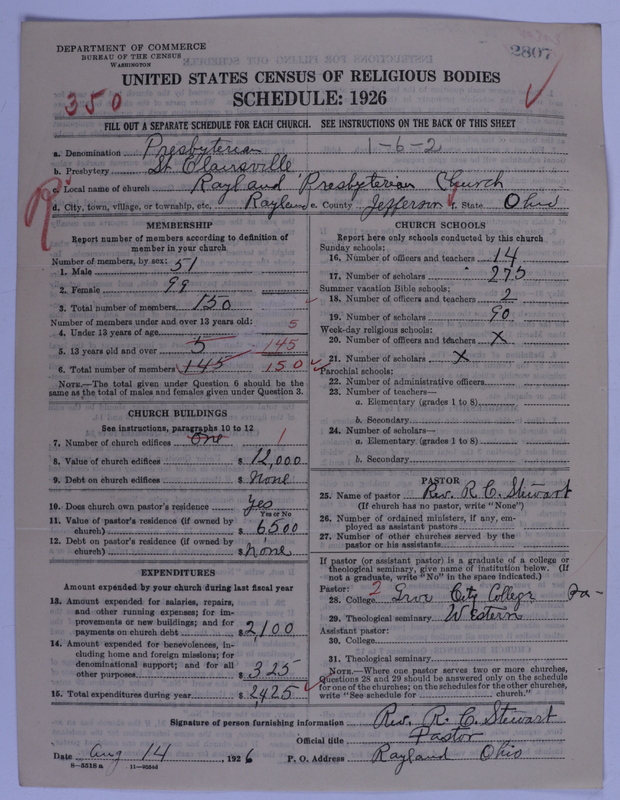 DEPARTMENT OF COMMERCE
BUREAU OF THE CENSUS
WASHINGTON
2807
UNITED STATES CENSUS OF RELIGIOUS BODIES
350
SCHEDULE: 1926
FILL OUT A SEPARATE SCHEDULE FOR EACH CHURCH. SEE INSTRUCTIONS ON THE BACK OF THIS SHEET
a. Denomination Presbyterian 1-6-2
b. Presbytery St. Clairsville
c. Local name of church Rayland Presbyterian Church
d. City, town, village, or township, etc. Rayland e. County Jefferson f. State Ohio
MEMBERSHIP
Report number of members according to definition of member in your church
Number of members, by sex:
1. Male 51
2. Female 99
3. Total number of members 150
Number of members under and over 13 years old:
4. Under 13 years of age 5
5. 13 years old and over 5 145
6. Total number of members 145 150
NOTE.—The total given under Question 6 should be the
same as the total of males and females given under Question 3.
CHURCH BUILDINGS
See instructions, paragraphs 10 to 12
7. Number of church edifices One 1
8. Value of church edifices $ 12,000
9. Debt on church edifices $ None
10. Does church own pastor's residence Yes
Yes or No
11. Value of pastor's residence (if owned by
church) $ 6500
12. Debt on pastor's residence (if owned by
church) $ None
EXPENDITURES
Amount expended by your church during last fiscal year
13. Amount expended for salaries, repairs,
and other running expenses; for im-
provements or new buildings; and for
payments on church debt $ 2,100
14. Amount expended for benevolences, in-
cluding home and foreign missions; for
denominational support; and for all
other purposes $ 325
15. Total expenditures during year $ 2,425
CHURCH SCHOOLS
Report here only schools conducted by this church
Sunday schools:
16. Number of officers and teachers 14
17. Number of scholars 275
Summer vacation Bible schools:
18. Number of officers and teachers 2
19. Number of scholars 90
Week-day religious schools:
20. Number of officers and teachers X
21. Number of scholars X
Parochial schools:
22. Number of administrative officers
23. Number of teachers—
a. Elementary (grades 1 to 8)
b. Secondary
24. Number of scholars—
a. Elementary (grades 1 to 8)
b. Secondary
PASTOR
25. Name of pastor Rev. R. C. Stewart
(If church has no pastor, write "None")
26. Number of ordained ministers, if any, em-
ployed as assistant pastors
27. Number of other churches served by the
pastor or his assistants
If pastor (or assistant pastor) is a graduate of a college or
theological seminary, give name of institution below. (If
not a graduate, write "No" in the space indicated.)
Pastor: 2
28. College Grove City College Pa-
29. Theological seminary Western
Assistant pastor:
30. College
31. Theological seminary
NOTE.—Where one pastor serves two or more churches,
Questions 28 and 29 should be answered only on the schedule
for one of the churches; on the schedules for the other churches,
write "See schedule for church."
Signature of person furnishing information Rev. R. C. Stewart
Official title Pastor
Date Aug 14, 1926 P. O. Address Rayland Ohio
8-5518 a